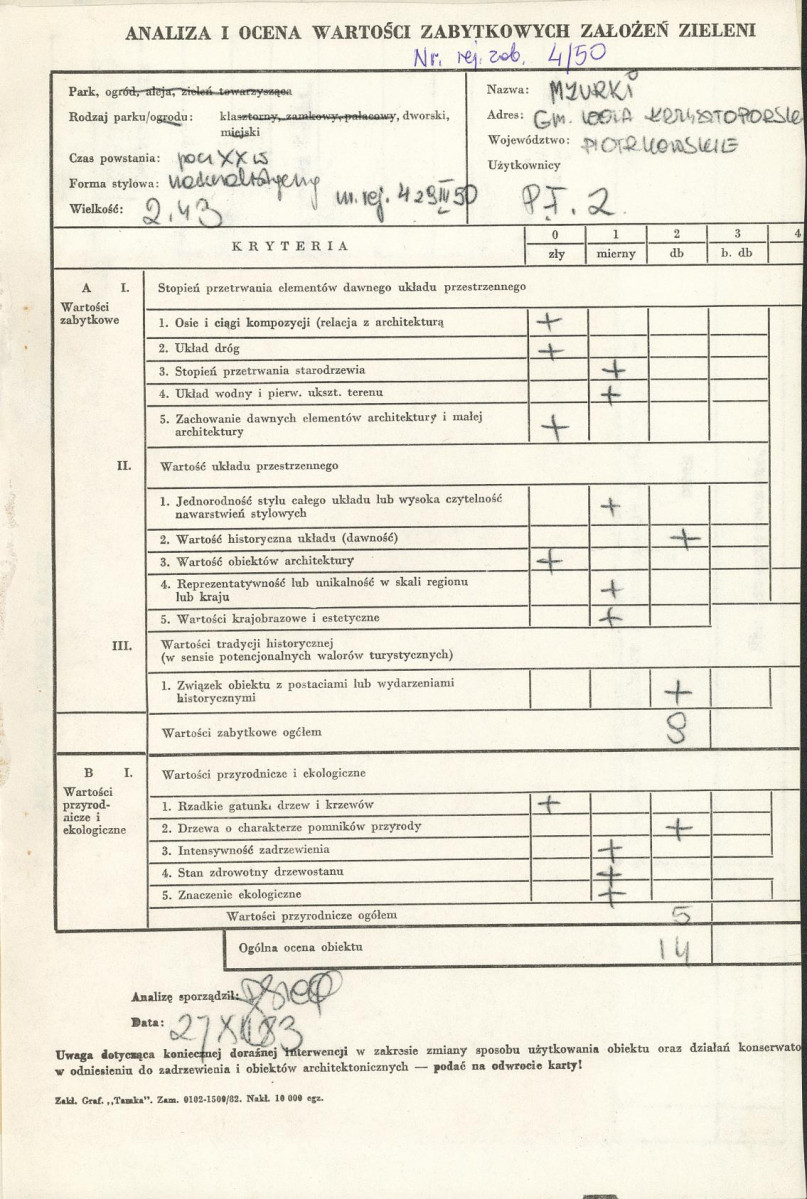 ANALIZA I OCENA WARTOŚCI ZABYTKOWYCH ZAŁOŻEŃ ZIELENI
Nr. rej. zab. 4/50
Park, ogród, aleja, zieleń towarzysząca
Rodzaj parku/ogrodu: klasztorny, zamkowy, pałacowy, dworski,
miejski
Czas powstania: pocz XX w
Forma stylowa:
nr. rej. 423 III 50
Wielkość: 2.43
Nazwa: MZURKI
Adres: Gm. WOLA KRZYSZTOPORSKA
Województwo: PIOTRKOWSKIE
Użytkownicy
P.F. 2
KRYTERIA 0 1 2 3 4
zły mierny db b. db
A I. Stopień przetrwania elementów dawnego układu przestrzennego
Wartości
zabytkowe
1. Osie i ciągi kompozycji (relacja z architekturą +
2. Układ dróg +
3. Stopień przetrwania starodrzewia +
4. Układ wodny i pierw. ukszt. terenu +
5. Zachowanie dawnych elementów architektury i małej
architektury +
II. Wartość układu przestrzennego
1. Jednorodność stylu całego układu lub wysoka czytelność
nawarstwień stylowych +
2. Wartość historyczna układu (dawność) +
3. Wartość obiektów architektury +
4. Reprezentatywność lub unikalność w skali regionu
lub kraju +
5. Wartości krajobrazowe i estetyczne +
III. Wartości tradycji historycznej
(w sensie potencjonalnych walorów turystycznych)
1. Związek obiektu z postaciami lub wydarzeniami
historycznymi +
Wartości zabytkowe ogółem 9
B I. Wartości przyrodnicze i ekologiczne
Wartości
przyrod-
nicze i
ekologiczne
1. Rzadkie gatunki drzew i krzewów +
2. Drzewa o charakterze pomników przyrody +
3. Intensywność zadrzewienia +
4. Stan zdrowotny drzewostanu +
5. Znaczenie ekologiczne +
Wartości przyrodnicze ogółem 5
Ogólna ocena obiektu 14
Analizę sporządził:
Data: 27 XI 83
Uwaga dotycząca koniecznej doraźnej interwencji w zakresie zmiany sposobu użytkowania obiektu oraz działań konserwato
w odniesieniu do zadrzewienia i obiektów architektonicznych — podać na odwrocie karty!
Zakł. Graf. „Tamka”. Zam. 0102-1500/82. Nakł. 10 000 egz.